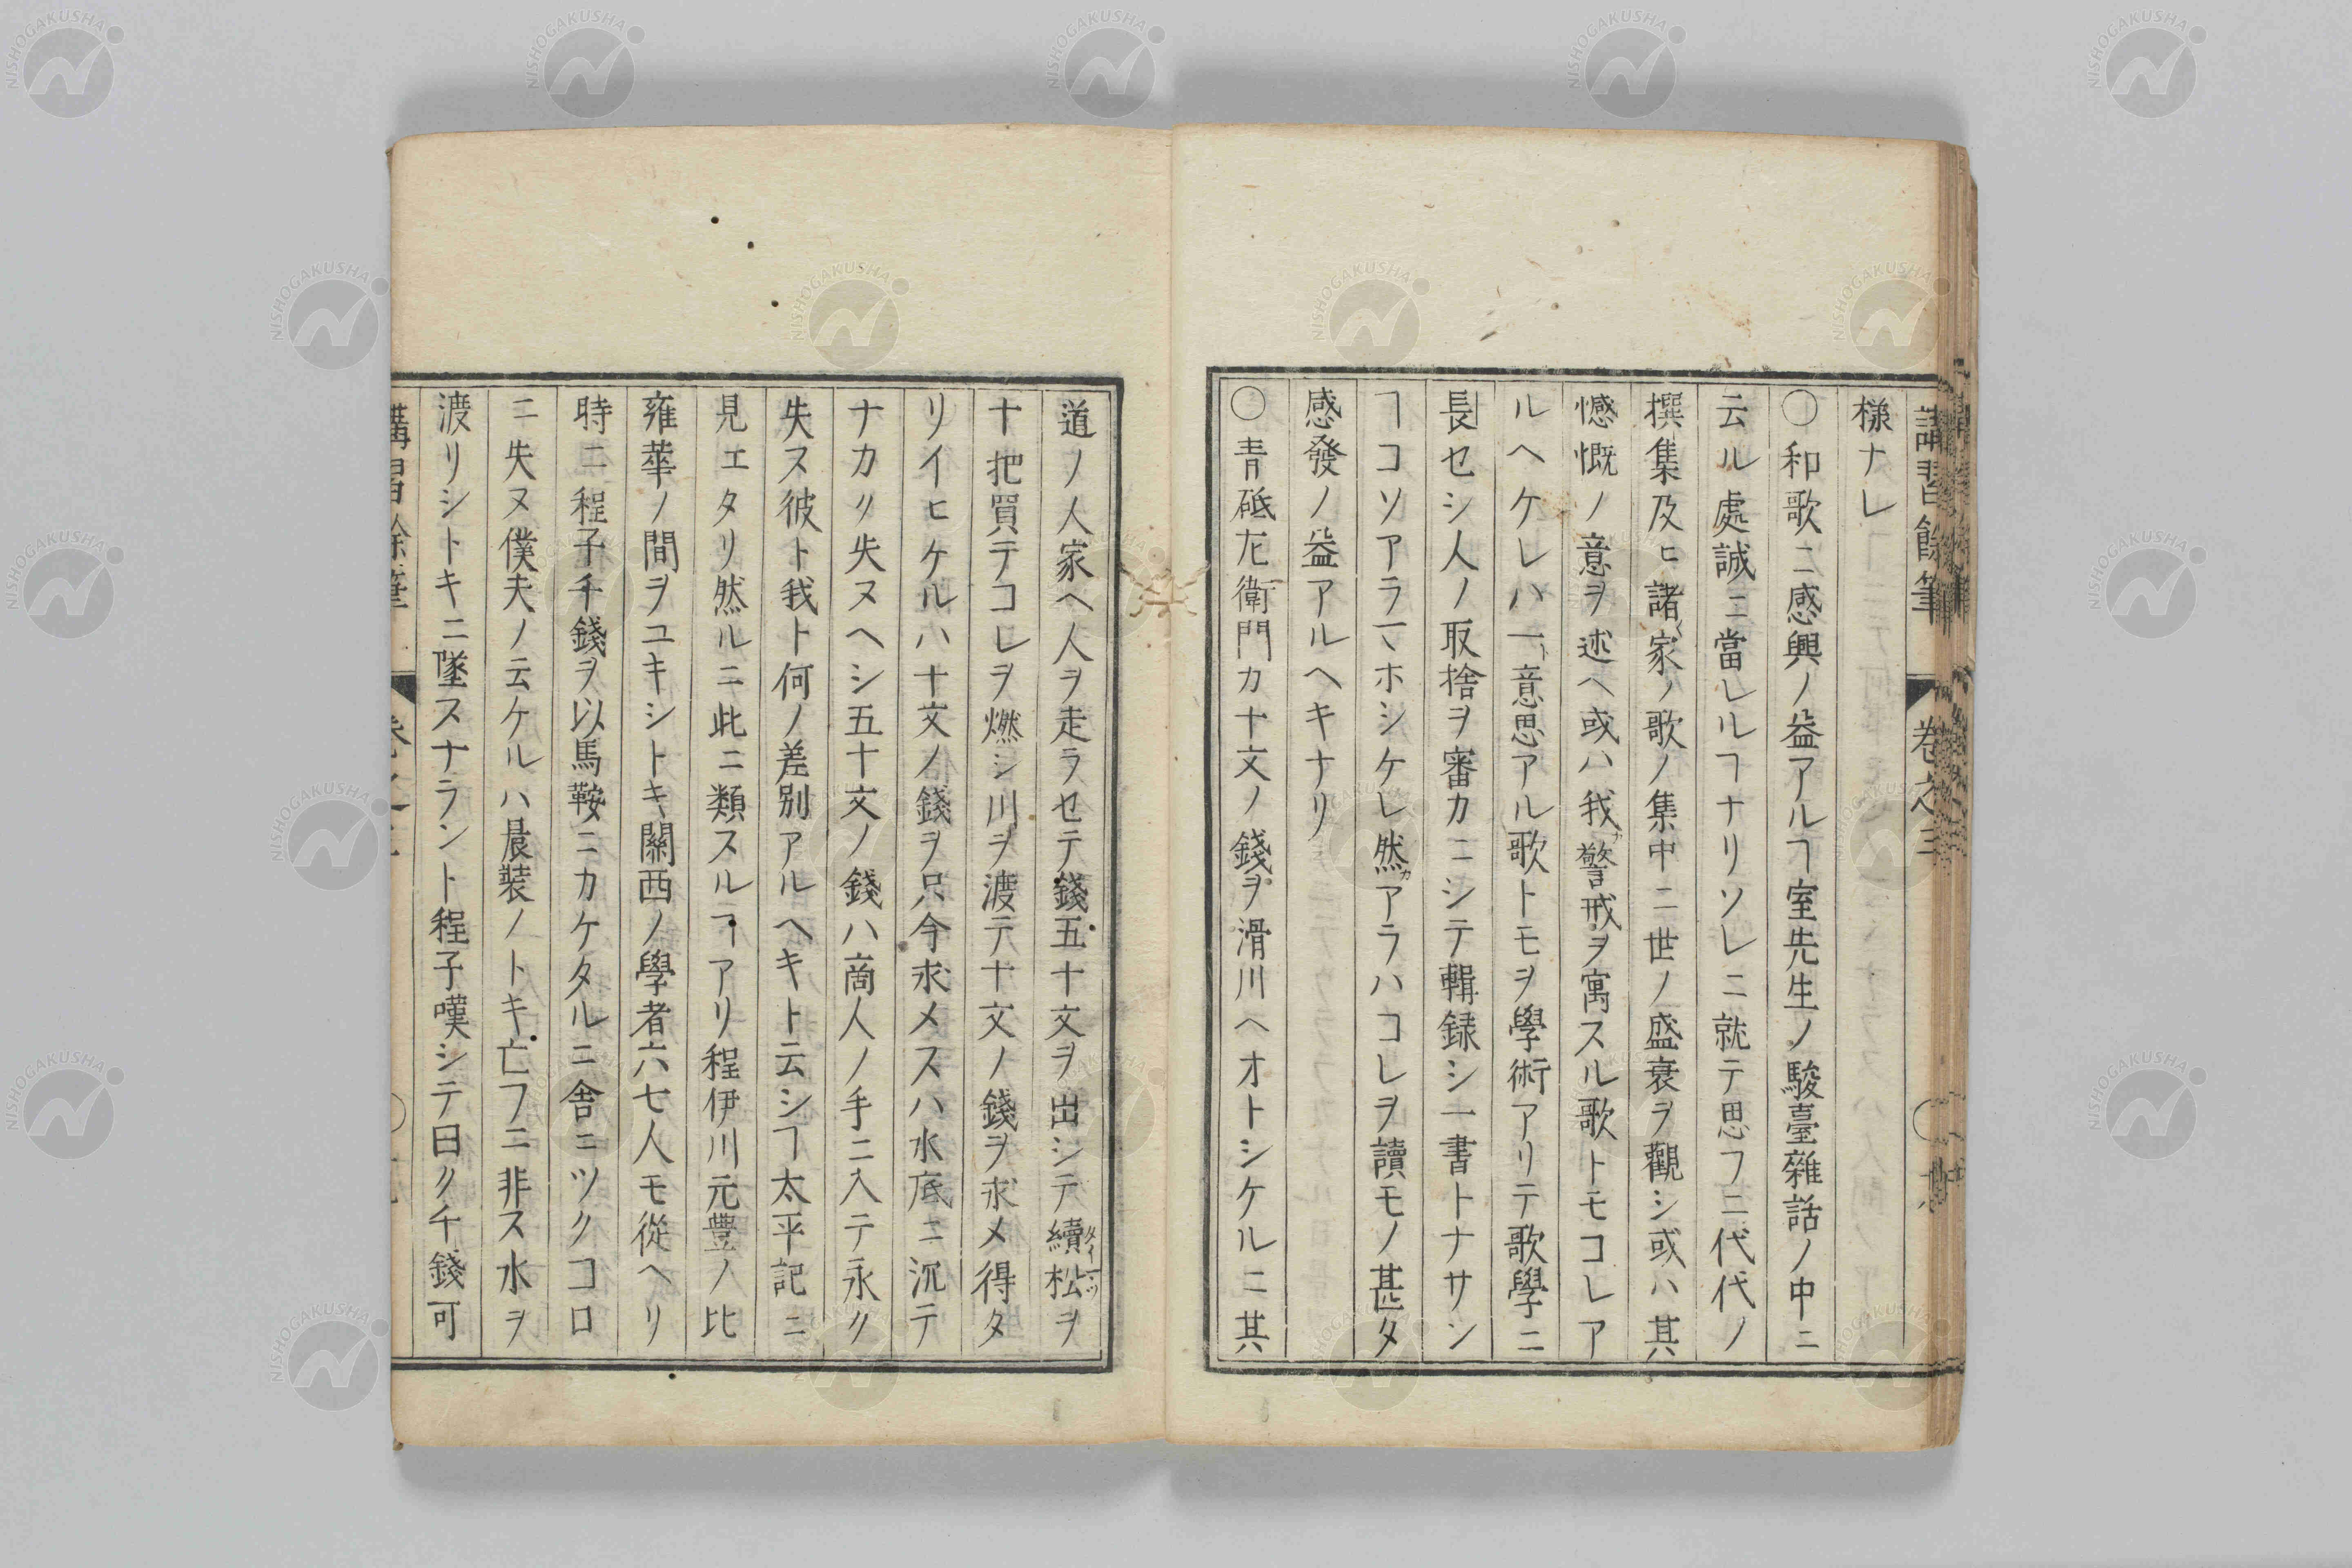 講習餘筆 卷之三
樣ナレ
〇和歌ニ感興ノ益アルヿ室先生ノ駿臺雜話ノ中ニ
云ル處誠ニ當レルヿナリソレニ就テ思フニ代代ノ
撰集及ヒ諸家ノ歌ノ集中ニ世ノ盛衰ヲ觀シ或ハ其
憾慨ノ意ヲ述ヘ或ハ我警戒ヲ寓スル歌トモコレア
ルヘケレハ一意思アル歌トモヲ學術アリテ歌學ニ
長セシ人ノ取捨ヲ審カニシテ輯録シ一書トナサン
ヿコソアラマホシケレ然アラハコレヲ讀モノ甚タ
感發ノ益アルヘキナリ
〇青砥左衛門カ十文ノ錢ヲ滑川ヘオトシケルニ其
道ノ人家ヘ人ヲ走ラセテ錢五十文ヲ出シテ續松ヲ
十把買テコレヲ燃シ川ヲ渡テ十文ノ錢ヲ求メ得タ
リイヒケルハ十文ノ錢ヲ只今求メスハ水底ニ沉テ
ナカク失ヌヘシ五十文ノ錢ハ商人ノ手ニ入テ永ク
失ス彼ト我ト何ノ差別アルヘキト云シヿ太平記ニ
見エタリ然ルニ此ニ類スルヿアリ程伊川元豊ノ比
雍華ノ間ヲユキシトキ關西ノ學者六七人モ從ヘリ
時ニ程子千錢ヲ以馬鞍ニカケタルニ舎ニツクコロ
ニ失ヌ僕夫ノ云ケルハ晨装ノトキ亡フニ非ス水ヲ
渡リシトキニ墜スナラント程子嘆シテ曰ク千錢可
講習餘筆
NISHOGAKUSHA